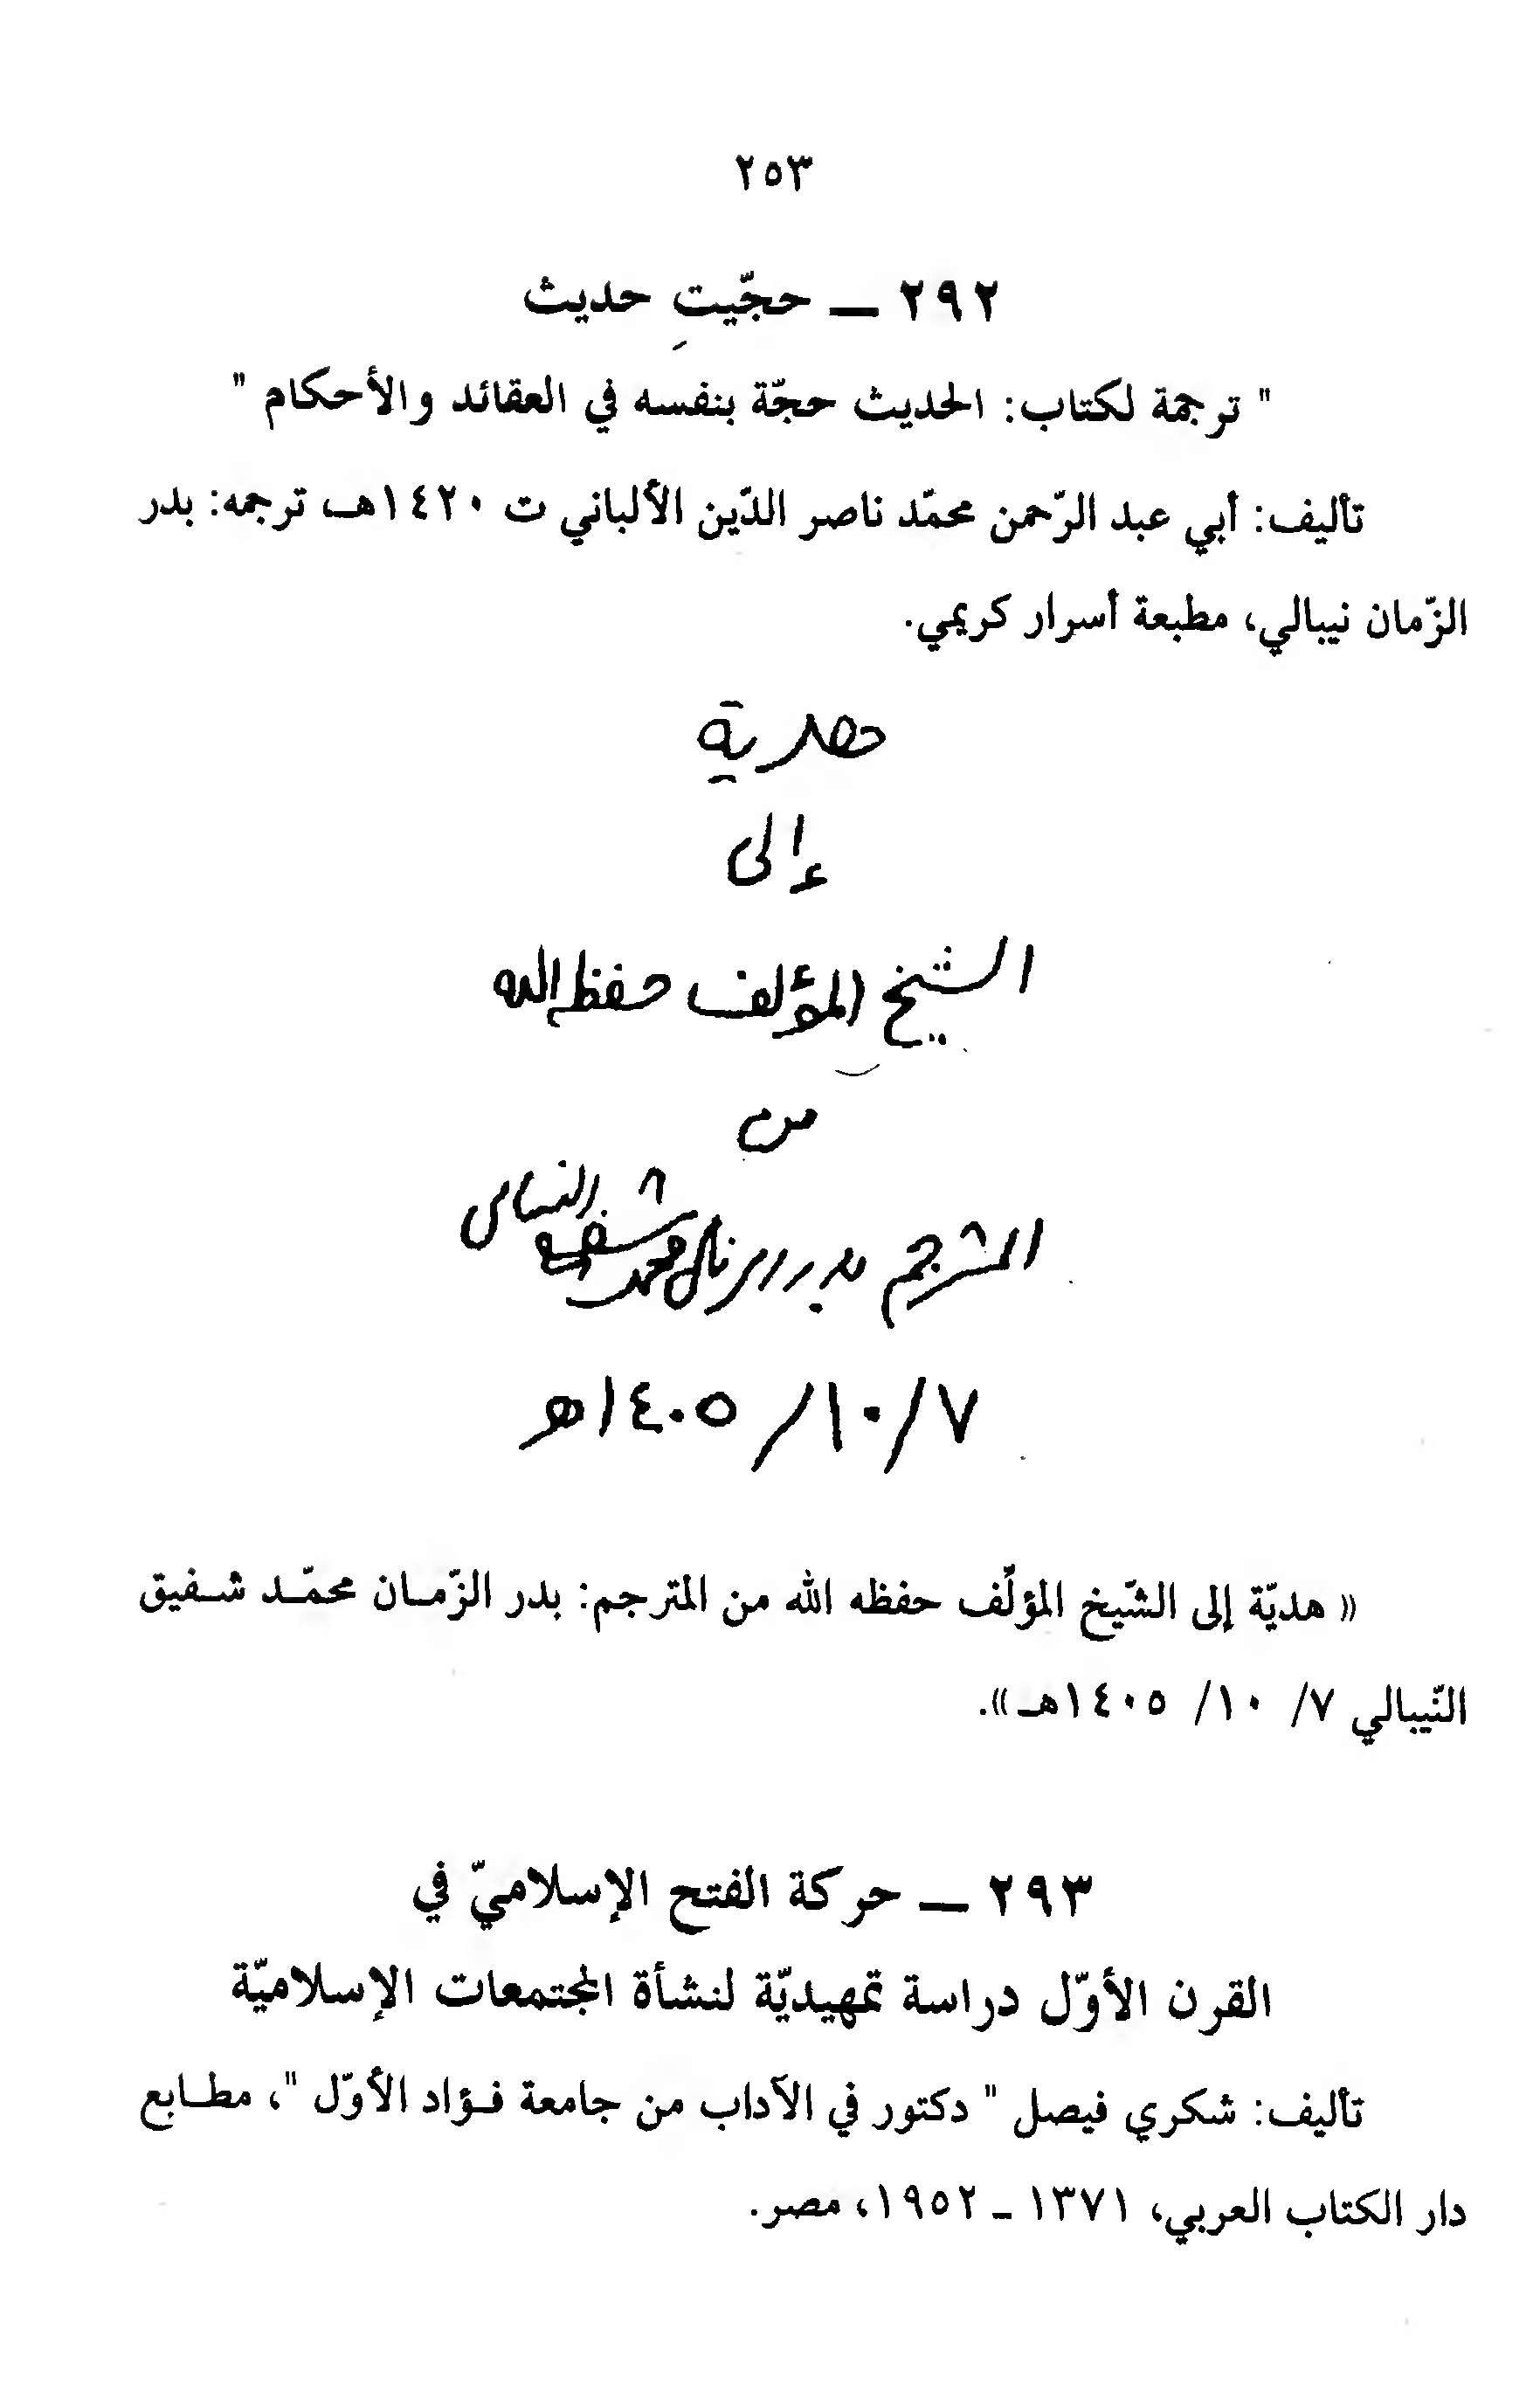 ٢٥٣
٢٩٢ — حجّيتِ حديث
" ترجمة لكتاب: الحديث حجّة بنفسه في العقائد والأحكام "
تأليف: أبي عبد الرّحمن محمّد ناصر الدّين الألباني ت ١٤٢٠هـ ترجمه: بدر
الزّمان نيبالي، مطبعة أسرار كريمي.
هدية
إلى
الشيخ المؤلف حفظه الله
من
المترجم بدر الزمان محمد شفيق النيبالي
٧/١٠/١٤٠٥هـ
« هديّة إلى الشّيخ المؤلّف حفظه الله من المترجم: بدر الزّمـان محمّـد شـفيق
النّيبالي ٧/ ١٠/ ١٤٠٥هـ».
٢٩٣ — حركة الفتح الإسلاميّ في
القرن الأوّل دراسة تمهيديّة لنشأة المجتمعات الإسلاميّة
تأليف: شكري فيصل " دكتور في الآداب من جامعة فـؤاد الأوّل "، مطـابع
دار الكتاب العربي، ١٣٧١ - ١٩٥٢، مصر.